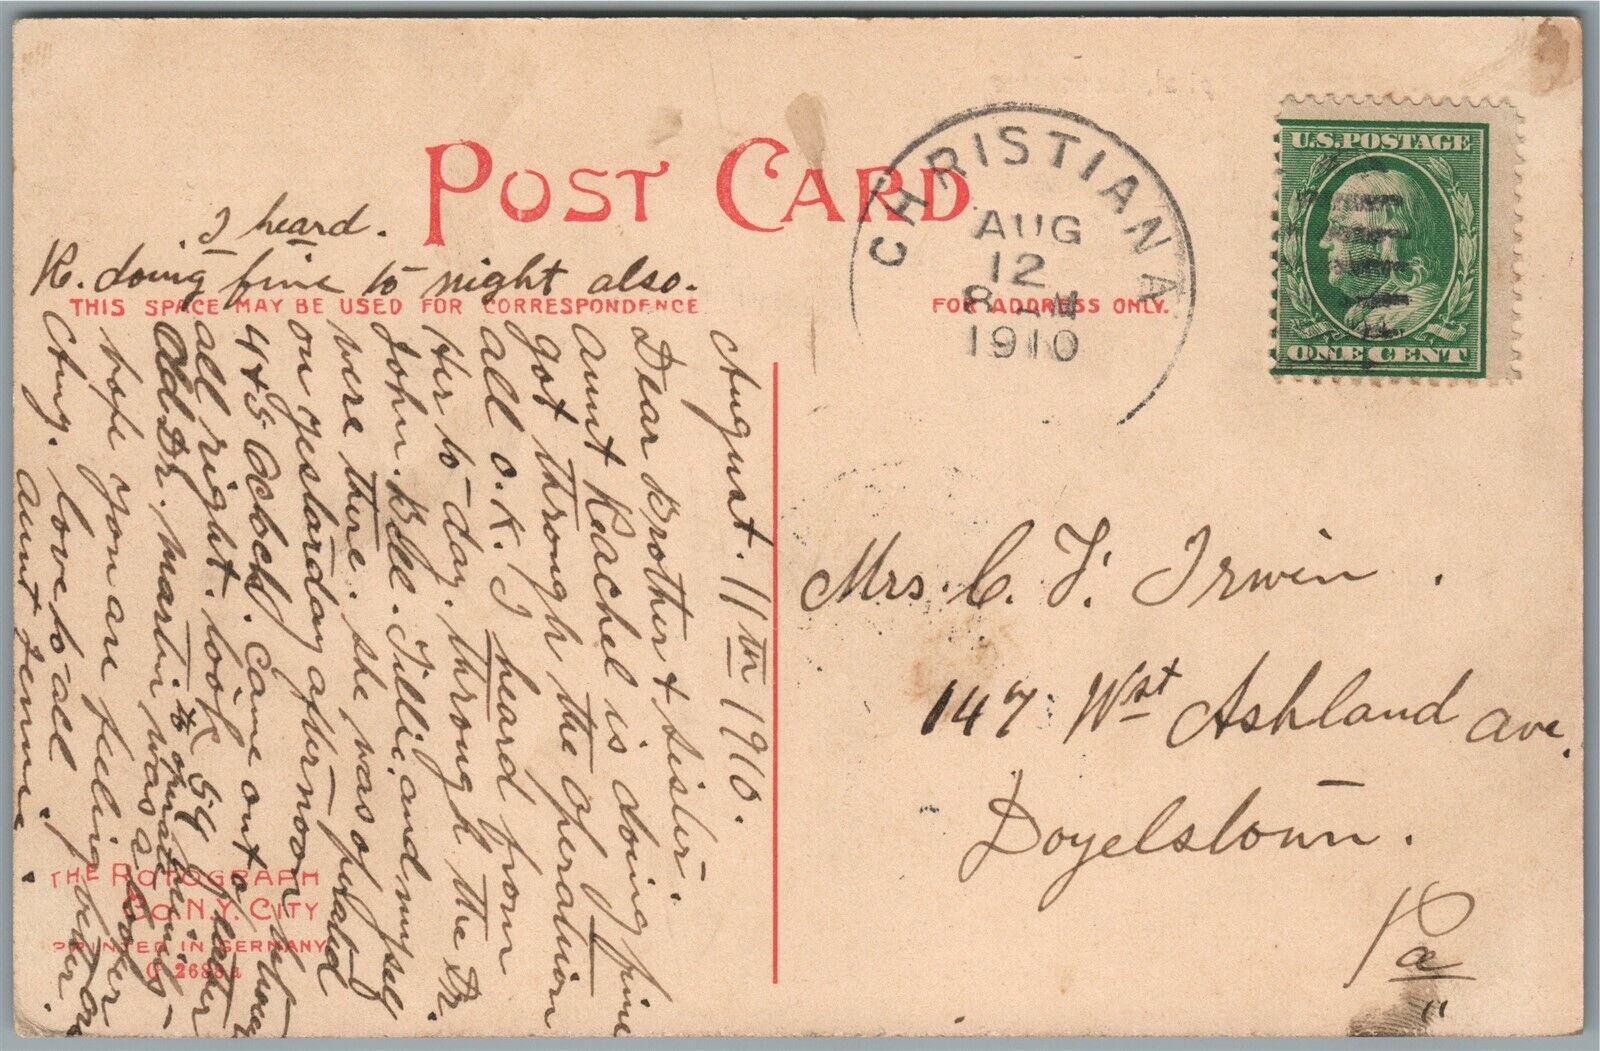 POST CARD
CHRISTIANA
AUG
12
8
1910
U.S. POSTAGE
ONE CENT
THIS SPACE MAY BE USED FOR CORRESPONDENCE
FOR ADDRESS ONLY.
August. 11th 1910.
Dear Brother & Sister.
Aunt Rachel is doing fine
got through the operation
all O.K. I heard from
Her to day. through the Dr.
John. Bell. Tillie. and myself
were there. she was operated
on yesterday afternoon bet
4 & 5 Oclock. Came out of
all right. took
Old Dr. Martin was a looker
hope you are feeling better
love to all
Aunt Jennie.
I heard.
R. doing fine to night also.
Mrs. C. F. Irwin.
147 Wst Ashland Ave.
Doyelstown.
Pa
THE ROTOGRAPH
CO. N.Y. CITY
PRINTED IN GERMANY
G 2688a